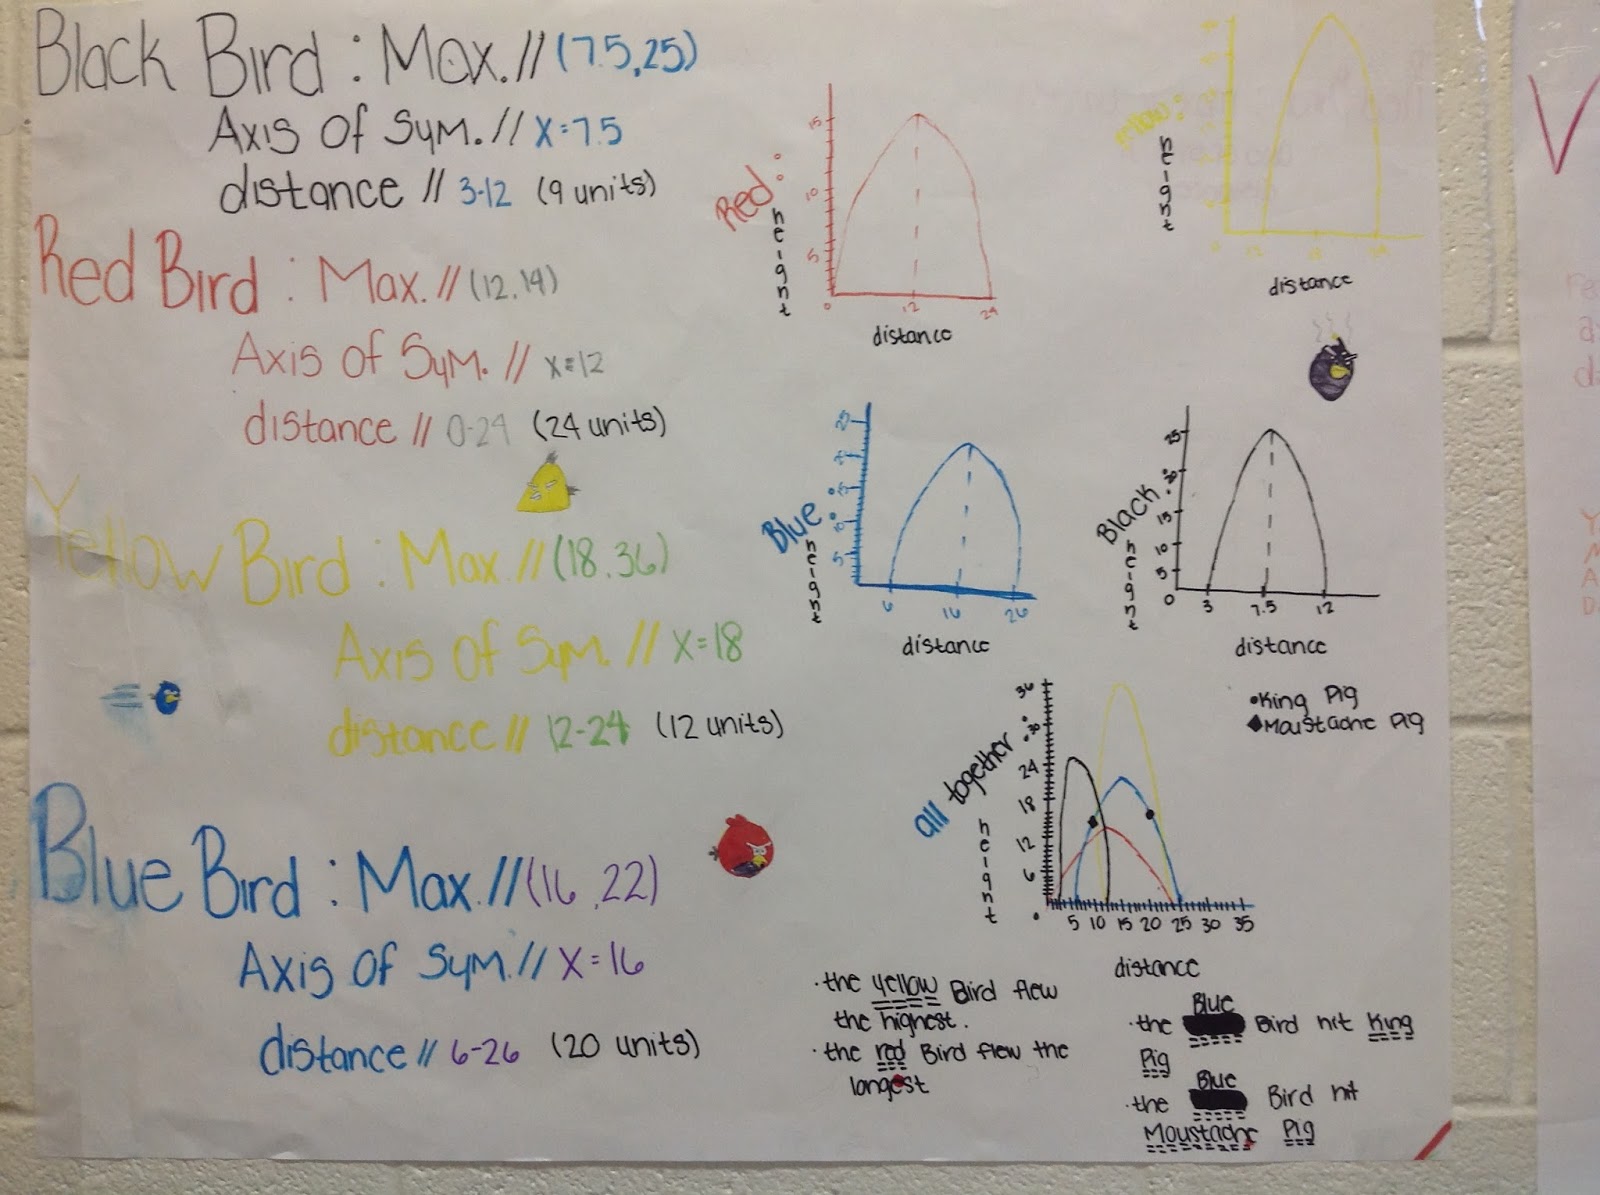 Black Bird : Max. // (7.5,25)
Axis of Sym. // X=7.5
distance // 3-12 (9 units)
Red Bird : Max. // (12,14)
Axis of Sym. // x=12
distance // 0-24 (24 units)
Yellow Bird : Max. // (18,36)
Axis of Sym. // X=18
distance // 12-24 (12 units)
Blue Bird : Max. // (16,22)
Axis of Sym. // X=16
distance // 6-26 (20 units)
Red:
height
15
10
5
0 12 24
distance
Yellow:
height
distance
Blue:
height
25
15
10
5
6 16 26
distance
Black:
height
25
20
15
10
5
0 3 7.5 12
distance
•King Pig
◆Moustache Pig
all together:
height
36
30
24
18
12
6
0
5 10 15 20 25 30 35
distance
•the yellow Bird flew
the highest.
•the red Bird flew the
longest
Blue
•the Bird hit King
Pig
Blue
•the Bird hit
Moustache Pig
V